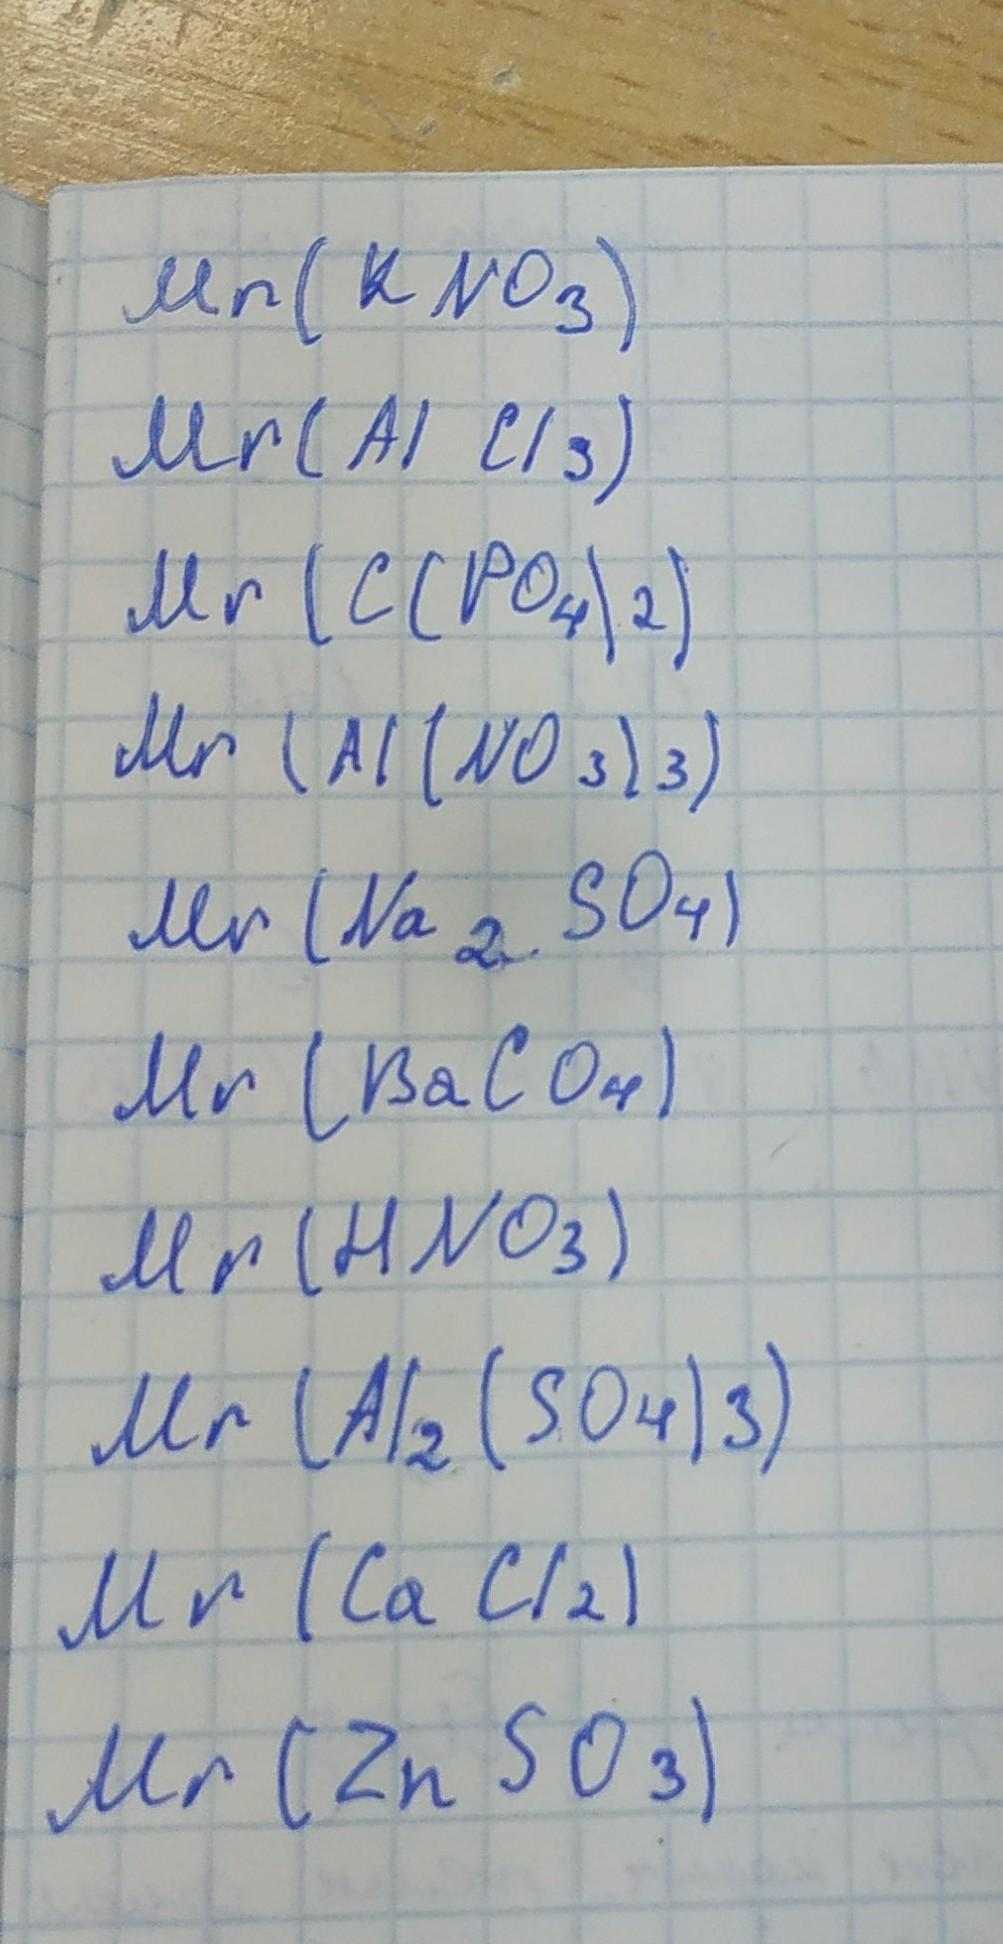 Mr(KNO₃)
Mr(AlCl₃)
Mr(C(PO₄)₂)
Mr(Al(NO₃)₃)
Mr(Na₂SO₄)
Mr(BaCO₄)
Mr(HNO₃)
Mr(Al₂(SO₄)3)
Mr(CaCl₂)
Mr(ZnSO₃)